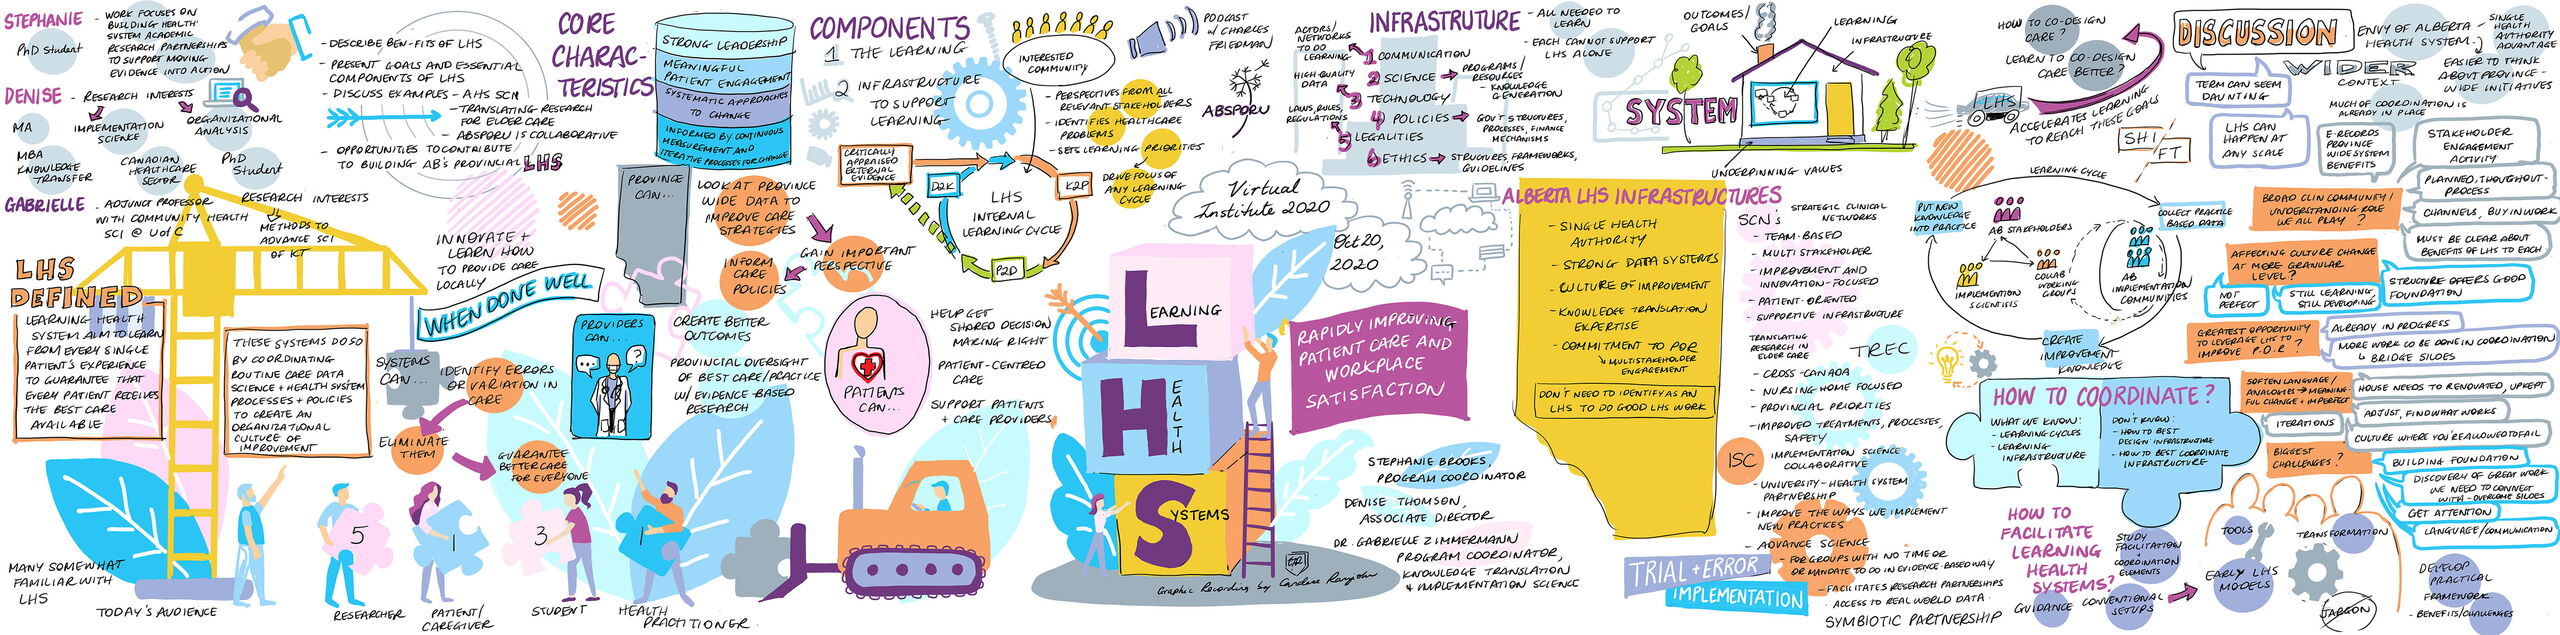 STEPHANIE
PhD Student
- WORK FOCUSES ON
BUILDING HEALTH
SYSTEM ACADEMIC
RESEARCH PARTNERSHIPS
TO SUPPORT MOVING
EVIDENCE INTO ACTION
DENISE - RESEARCH INTERESTS
IMPLEMENTATION
SCIENCE
ORGANIZATIONAL
ANALYSIS
MA
MBA
KNOWLEDGE
TRANSFER
CANADIAN
HEALTHCARE
SECTOR
PhD
Student
GABRIELLE - ADJUNCT PROFESSOR
WITH COMMUNITY HEALTH
SCI @ U of C
RESEARCH INTERESTS
METHODS TO
ADVANCE SCI
OF KT
- DESCRIBE BENEFITS OF LHS
- PRESENT GOALS AND ESSENTIAL
COMPONENTS OF LHS
- DISCUSS EXAMPLES - AHS SCN
- TRANSLATING RESEARCH
FOR ELDER CARE
- ABSPORU IS COLLABORATIVE
- OPPORTUNITIES TO CONTRIBUTE
TO BUILDING AB'S PROVINCIAL LHS
LHS
DEFINED
LEARNING HEALTH
SYSTEM AIM TO LEARN
FROM EVERY SINGLE
PATIENT'S EXPERIENCE
TO GUARANTEE THAT
EVERY PATIENT RECEIVES
THE BEST CARE
AVAILABLE
THESE SYSTEMS DO SO
BY COORDINATING
ROUTINE CARE DATA
SCIENCE + HEALTH SYSTEM
PROCESSES + POLICIES
TO CREATE AN
ORGANIZATIONAL
CULTURE OF
IMPROVEMENT
MANY SOMEWHAT
FAMILIAR WITH
LHS
TODAY'S AUDIENCE
5
RESEARCHER
1
PATIENT/
CAREGIVER
3
STUDENT
1
HEALTH
PRACTITIONER
INNOVATE +
LEARN HOW
TO PROVIDE CARE
LOCALLY
WHEN DONE WELL
SYSTEMS
CAN...
IDENTIFY ERRORS
OR VARIATION IN
CARE
ELIMINATE
THEM
GUARANTEE
BETTER CARE
FOR EVERYONE
CORE
CHARAC-
TERISTICS
STRONG LEADERSHIP
MEANINGFUL
PATIENT ENGAGEMENT
SYSTEMATIC APPROACHES
TO CHANGE
INFORMED BY CONTINUOUS
MEASUREMENT AND
ITERATIVE PROCESSES FOR CHANGE
PROVINCE
CAN...
LOOK AT PROVINCE
WIDE DATA TO
IMPROVE CARE
STRATEGIES
GAIN IMPORTANT
PERSPECTIVE
INFORM
CARE
POLICIES
PROVIDERS
CAN...
?
CREATE BETTER
OUTCOMES
PROVINCIAL OVERSIGHT
OF BEST CARE/PRACTICE
W/ EVIDENCE-BASED
RESEARCH
PATIENTS
CAN...
HELP GET
SHARED DECISION
MAKING RIGHT
PATIENT-CENTRED
CARE
SUPPORT PATIENTS
+ CARE PROVIDERS
COMPONENTS
1 THE LEARNING
2 INFRASTRUCTURE
TO SUPPORT
LEARNING
INTERESTED
COMMUNITY
- PERSPECTIVES FROM ALL
RELEVANT STAKEHOLDERS
- IDENTIFIES HEALTHCARE
PROBLEMS
- SETS LEARNING PRIORITIES
DRIVE FOCUS OF
ANY LEARNING
CYCLE
CRITICALLY
APPRAISED
EXTERNAL
EVIDENCE
D2K
K2P
P2D
LHS
INTERNAL
LEARNING CYCLE
PODCAST
w/ CHARLES
FRIEDMAN
ABSPORU
Virtual
Institute 2020
Oct 20,
2020
LEARNING
HEALTH
SYSTEMS
RAPIDLY IMPROVING
PATIENT CARE AND
WORKPLACE
SATISFACTION
STEPHANIE BROOKS,
PROGRAM COORDINATOR
DENISE THOMSON,
ASSOCIATE DIRECTOR
DR. GABRIELLE ZIMMERMANN
PROGRAM COORDINATOR,
KNOWLEDGE TRANSLATION
& IMPLEMENTATION SCIENCE
Graphic Recording by
INFRASTRUTURE
- ALL NEEDED TO
LEARN
- EACH CANNOT SUPPORT
LHS ALONE
ACTORS/
NETWORKS
TO DO
LEARNING
HIGH QUALITY
DATA
LAWS, RULES,
REGULATIONS
1 COMMUNICATION
2 SCIENCE
PROGRAMS/
RESOURCES
- KNOWLEDGE
GENERATION
3 TECHNOLOGY
4 POLICIES
GOV'T STRUCTURES,
PROCESSES, FINANCE
MECHANISMS
5 LEGALITIES
6 ETHICS
STRUCTURES, FRAMEWORKS,
GUIDELINES
OUTCOMES/
GOALS
LEARNING
INFRASTRUCTURE
SYSTEM
UNDERPINNING VALUES
ALBERTA LHS INFRASTRUCTURES
- SINGLE HEALTH
AUTHORITY
- STRONG DATA SYSTEMS
- CULTURE OF IMPROVEMENT
- KNOWLEDGE TRANSLATION
EXPERTISE
- COMMITMENT TO POR
MULTISTAKEHOLDER
ENGAGEMENT
DON'T NEED TO IDENTIFY AS AN
LHS TO DO GOOD LHS WORK
TRIAL + ERROR
IMPLEMENTATION
SCN's
STRATEGIC CLINICAL
NETWORKS
- TEAM-BASED
- MULTI STAKEHOLDER
- IMPROVEMENT AND
INNOVATION-FOCUSED
- PATIENT-ORIENTED
- SUPPORTIVE INFRASTRUCTURE
TRANSLATING
RESEARCH IN
ELDER CARE
TREC
- CROSS-CANADA
- NURSING HOME FOCUSED
- PROVINCIAL PRIORITIES
- IMPROVED TREATMENTS, PROCESSES,
SAFETY
ISC
IMPLEMENTATION SCIENCE
COLLABORATIVE
- UNIVERSITY-HEALTH SYSTEM
PARTNERSHIP
- IMPROVE THE WAYS WE IMPLEMENT
NEW PRACTICES
- ADVANCE SCIENCE
- FOR GROUPS WITH NO TIME OR
OR MANDATE TO DO IN EVIDENCE-BASED WAY
- FACILITATES RESEARCH PARTNERSHIPS
- ACCESS TO REAL WORLD DATA
SYMBIOTIC PARTNERSHIP
HOW TO CO-DESIGN
CARE?
LEARN TO CO-DESIGN
CARE BETTER?
LHS
ACCELERATES LEARNING
TO REACH THESE GOALS
SHI
FT
LEARNING CYCLE
PUT NEW
KNOWLEDGE
INTO PRACTICE
AB STAKEHOLDERS
COLLECT PRACTICE
BASED DATA
IMPLEMENTION
SCIENTISTS
COLLAB/
WORKING
GROUPS
AB
IMPLEMENTATION
COMMUNITIES
CREATE
IMPROVEMENT
KNOWLEDGE
HOW TO COORDINATE?
WHAT WE KNOW:
- LEARNING CYCLES
- LEARNING
INFRASTRUCTURE
DON'T KNOW:
- HOW TO BEST
DESIGN INFRASTRUCTURE
- HOW TO BEST COORDINATE
INFRASTRUCTURE
HOW TO
FACILITATE
LEARNING
HEALTH
SYSTEMS?
STUDY
FACILITATION
+
COORDINATION
ELEMENTS
GUIDANCE
CONVENTIONAL
SETUPS
EARLY LHS
MODELS
TOOLS
TRANSFORMATION
JARGON
DEVELOP
PRACTICAL
FRAMEWORK
- BENEFITS/CHALLENGES
DISCUSSION
ENVY OF ALBERTA
HEALTH SYSTEM
- SINGLE
HEALTH
AUTHORITY
ADVANTAGE
WIDER
CONTEXT
EASIER TO THINK
ABOUT PROVINCE-
WIDE INITIATIVES
MUCH OF COORDINATION IS
ALREADY IN PLACE
TERM CAN SEEM
DAUNTING
LHS CAN
HAPPEN AT
ANY SCALE
E-RECORDS
PROVINCE
WIDE SYSTEM
BENEFITS
STAKEHOLDER
ENGAGEMENT
ACTIVITY
PLANNED, THOUGHTOUT-
PROCESS
CHANNELS, BUY IN WORK
MUST BE CLEAR ABOUT
BENEFITS OF LHS TO EACH
BROAD CLIN COMMUNITY/
UNDERSTANDING ROLE
WE ALL PLAY?
AFFECTING CULTURE CHANGE
AT MORE GRANULAR
LEVEL?
NOT
PERFECT
STILL LEARNING
STILL DEVELOPING
STRUCTURE OFFERS GOOD
FOUNDATION
GREATEST OPPORTUNITY
TO LEVERAGE LHS TO
IMPROVE P.O.R?
ALREADY IN PROGRESS
MORE WORK TO BE DONE IN COORDINATION
BRIDGE SILOES
SOFTEN LANGUAGE/
ANALOGIES → MEANING-
FUL CHANGE + IMPERFECT
HOUSE NEEDS TO RENOVATED, UPKEPT
ADJUST, FIND WHAT WORKS
ITERATIONS
CULTURE WHERE YOU'RE ALLOWED TO FAIL
BIGGEST
CHALLENGES?
BUILDING FOUNDATION
DISCOVERY OF GREAT WORK
WE NEED TO CONNECT
WITH - OVERCOME SILOES
GET ATTENTION
LANGUAGE/COMMUNICATION